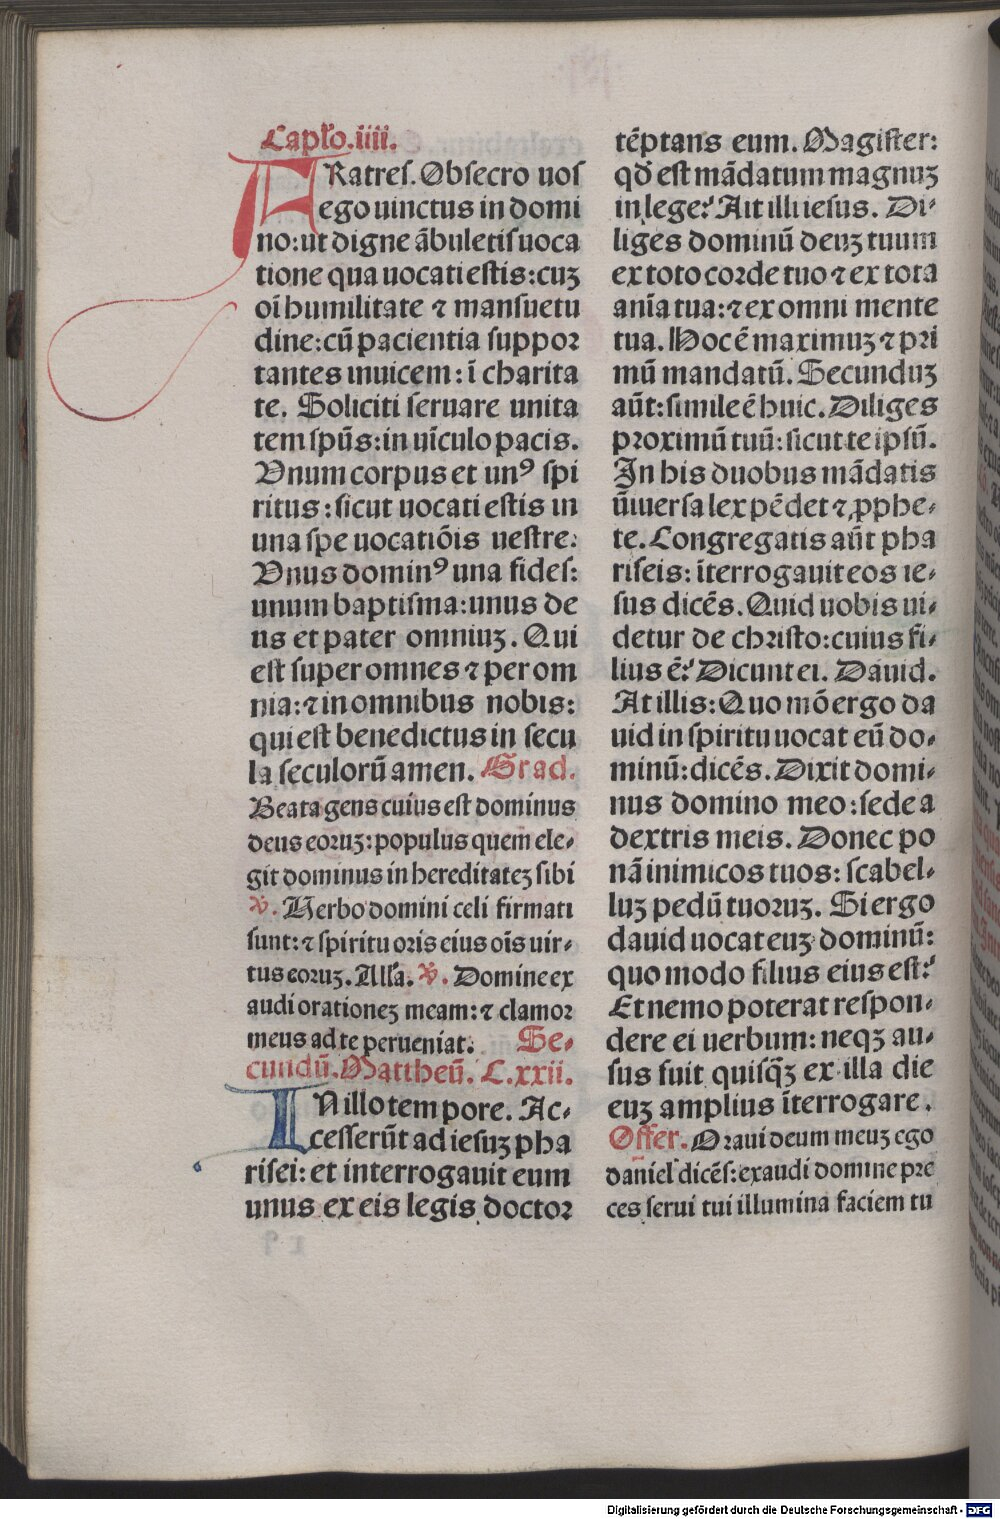 Capło.iiii.
FRatres. Obsecro uos
ego uinctus in domi
no: ut digne ābuletis uoca
tione qua uocati estis: cuꝫ
oī humilitate ⁊ mansuetu
dine: cū pacientia suppor
tantes inuicem: ī charita
te. Soliciti seruare unita
tem spūs: in uīculo pacis.
Vnum corpus et unꝰ spi
ritus: sicut uocati estis in
una spe uocatiōis uestre:
Vnus dominꝰ una fides:
unum baptisma: unus de
us et pater omniuꝫ. Qui
est super omnes ⁊ per om
nia: ⁊ in omnibus nobis:
qui est benedictus in secu
la seculorū amen. Grad.
Beata gens cuius est dominus
deus eoruꝫ: populus quem ele-
git dominus in hereditateꝫ sibi
V. Uerbo domini celi firmati
sunt: ⁊ spiritu oris eius oīs uir-
tus eoruꝫ. Alła. V. Domine ex
audi orationeꝫ meam: ⁊ clamor
meus ad te perueniat. Se-
cundū. Mattheū. C. xxii.
IN illo tempore. Ac-
cesserūt ad iesuꝫ pha
risei: et interrogauit eum
unus ex eis legis doctor
tēptans eum. Magister:
qđ est mādatum magnuꝫ
in lege? Ait illi iesus. Di-
liges dominū deuꝫ tuum
ex toto corde tuo ⁊ ex tota
anīa tua: ⁊ ex omni mente
tua. Hoc ē maximuꝫ ⁊ pri
mū mandatū. Secunduꝫ
aūt: simile ē huic. Diliges
proximū tuū: sicut te ipsū.
In his duobus mādatis
ūiuersa lex pēdet ⁊ ꝓphe-
te. Congregatis aūt pha
riseis: īterrogauit eos ie-
sus dicēs. Quid uobis ui-
detur de christo: cuius fi-
lius ē? Dicunt ei. Dauid.
At illis: Quo mō ergo da
uid in spiritu uocat eū do-
minū: dicēs. Dixit domi-
nus domino meo: sede a
dextris meis. Donec po
nā inimicos tuos: scabel-
luꝫ pedū tuoruꝫ. Si ergo
dauid uocat euꝫ dominū:
quo modo filius eius est?
Et nemo poterat respon-
dere ei uerbum: neqꝫ au-
sus fuit quisq̄ꝫ ex illa die
euꝫ amplius īterrogare.
Offer. Oraui deum meuꝫ ego
daniel dicēs: exaudi domine pre
ces serui tui illumina faciem tu
Digitalisierung gefördert durch die Deutsche Forschungsgemeinschaft - DFG